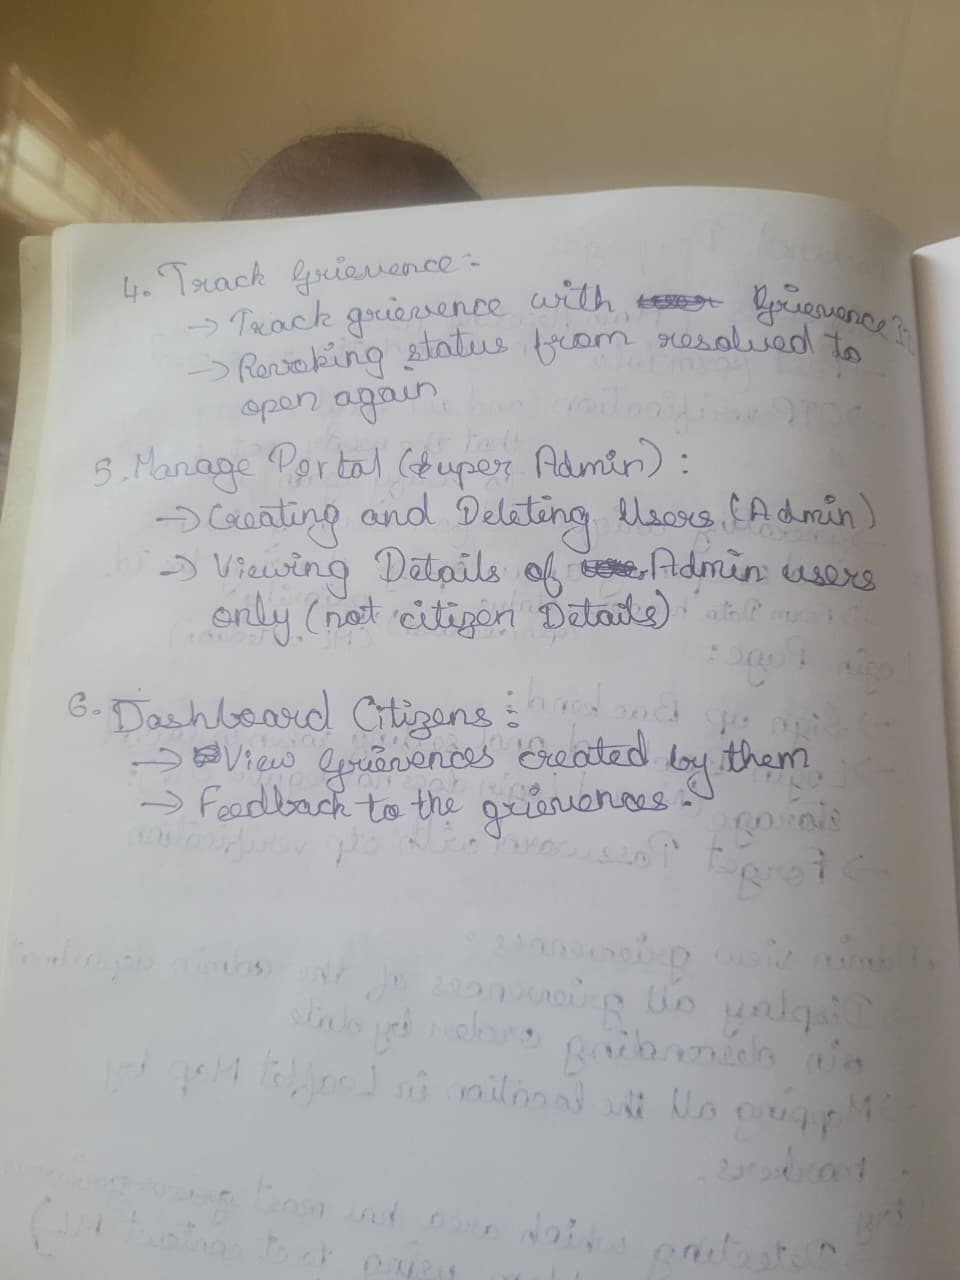 4. Track Grievence:-
→ Track grievence with Grievence ID
→ Revoking status from resolved to
open again
5. Manage Portal (Super Admin) :
→ Creating and Deleting Users (Admin)
→ Viewing Details of Admin users
only (not citizen Details)
6. Dashboard Citizens:
→ View Grievences created by them
→ Feedback to the grievences.